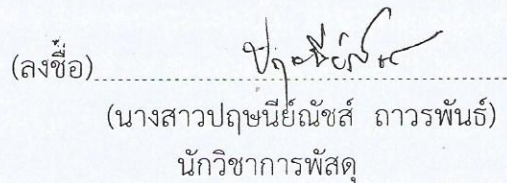 (ลงชื่อ)
(นางสาวปฤษนีย์ณัชส์ ถาวรพันธ์)
นักวิชาการพัสดุ